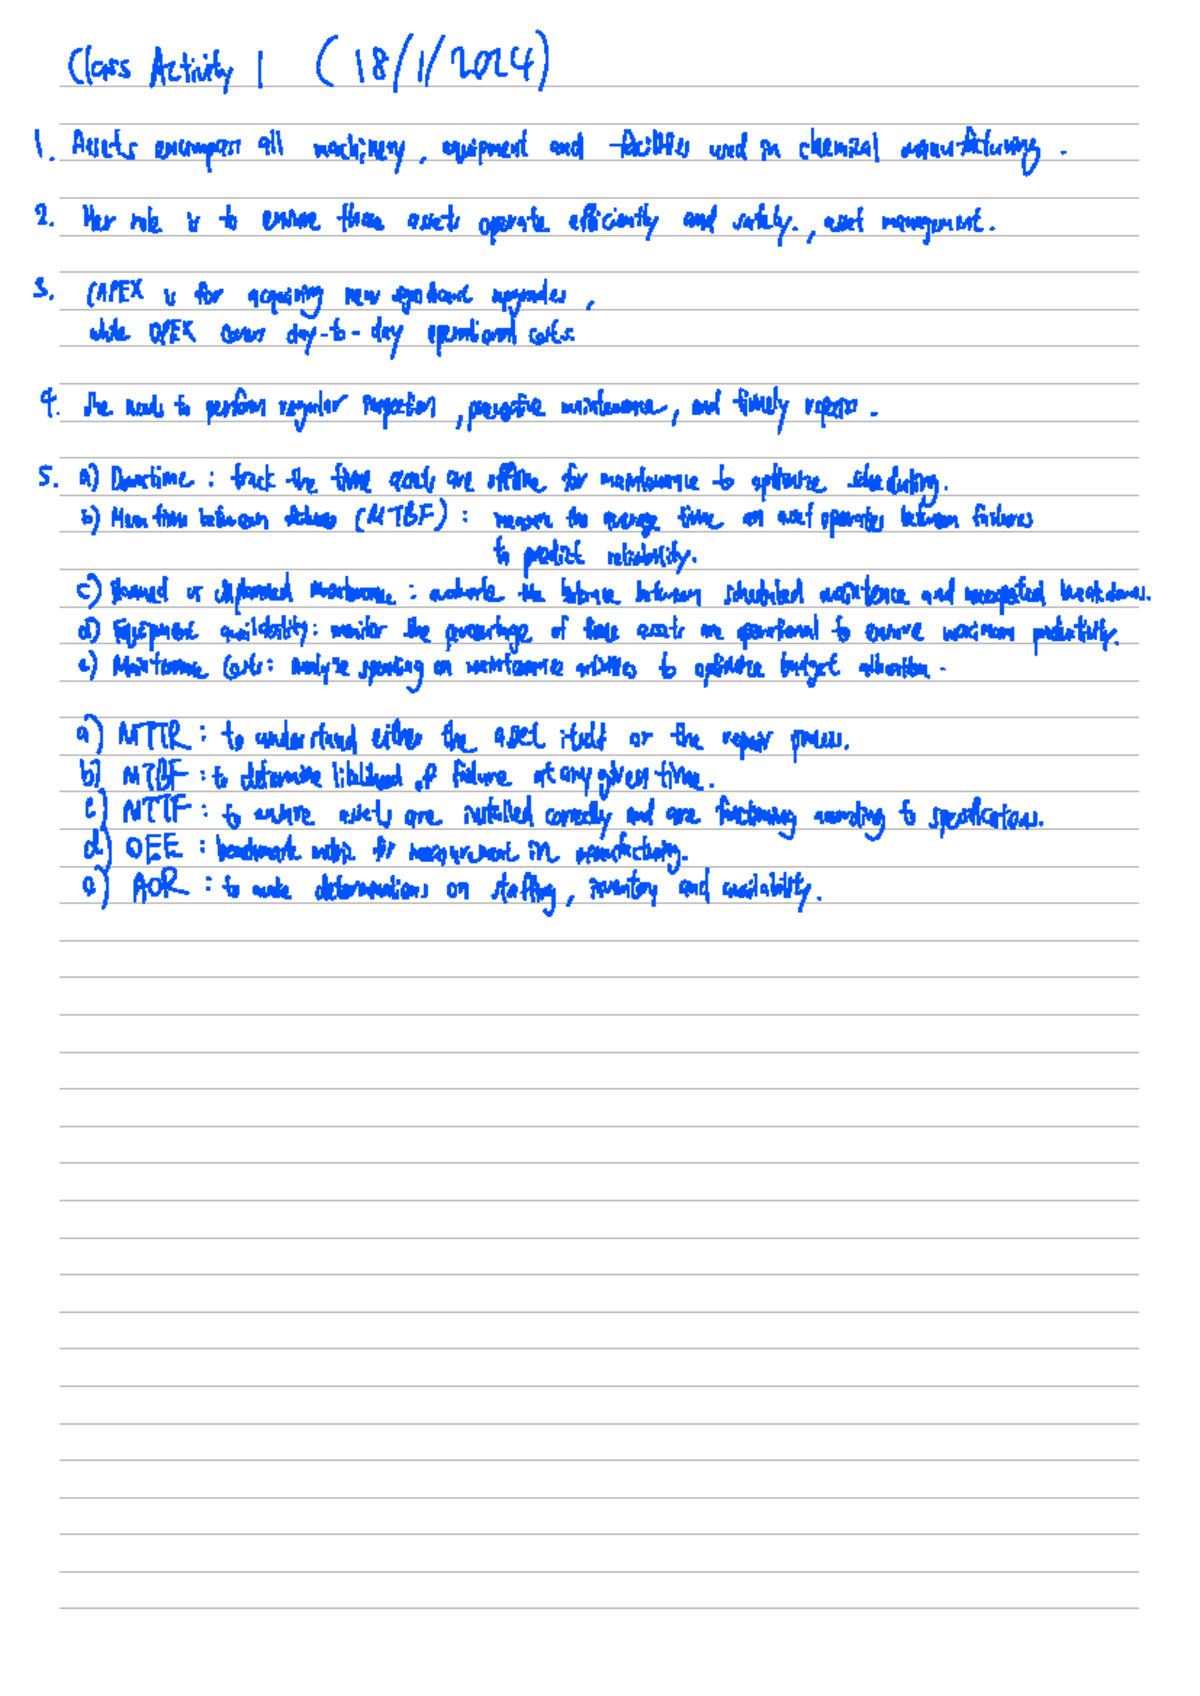 Class Activity 1 (18/1/2024)
1. Assets encompass all machinery, equipment and facilities used in chemical manufacturing.
2. Her role is to ensure these assets operate efficiently and safely., asset management.
3. CAPEX is for acquiring new significant upgrades,
while OPEX covers day-to-day operational costs.
4. She needs to perform regular inspection, preventive maintenance, and timely repairs.
5. a) Downtime: track the time assets are offline for maintenance to optimize scheduling.
b) Mean time between failures (MTBF): measure the average time an asset operates between failures
to predict reliability.
c) Planned vs unplanned maintenance: evaluate the balance between scheduled maintenance and unexpected breakdowns.
d) Equipment availability: monitor the percentage of time assets are operational to ensure maximum productivity.
e) Maintenance Costs: analyze spending on maintenance activities to optimize budget allocation.
a) MTTR: to understand either the asset itself or the repair process.
b) MTBF: to determine likelihood of failure at any given time.
c) MTTF: to ensure assets are installed correctly and are functioning according to specifications.
d) OEE: benchmark metric for measurement in manufacturing.
e) AOR: to make determinations on staffing, inventory and availability.